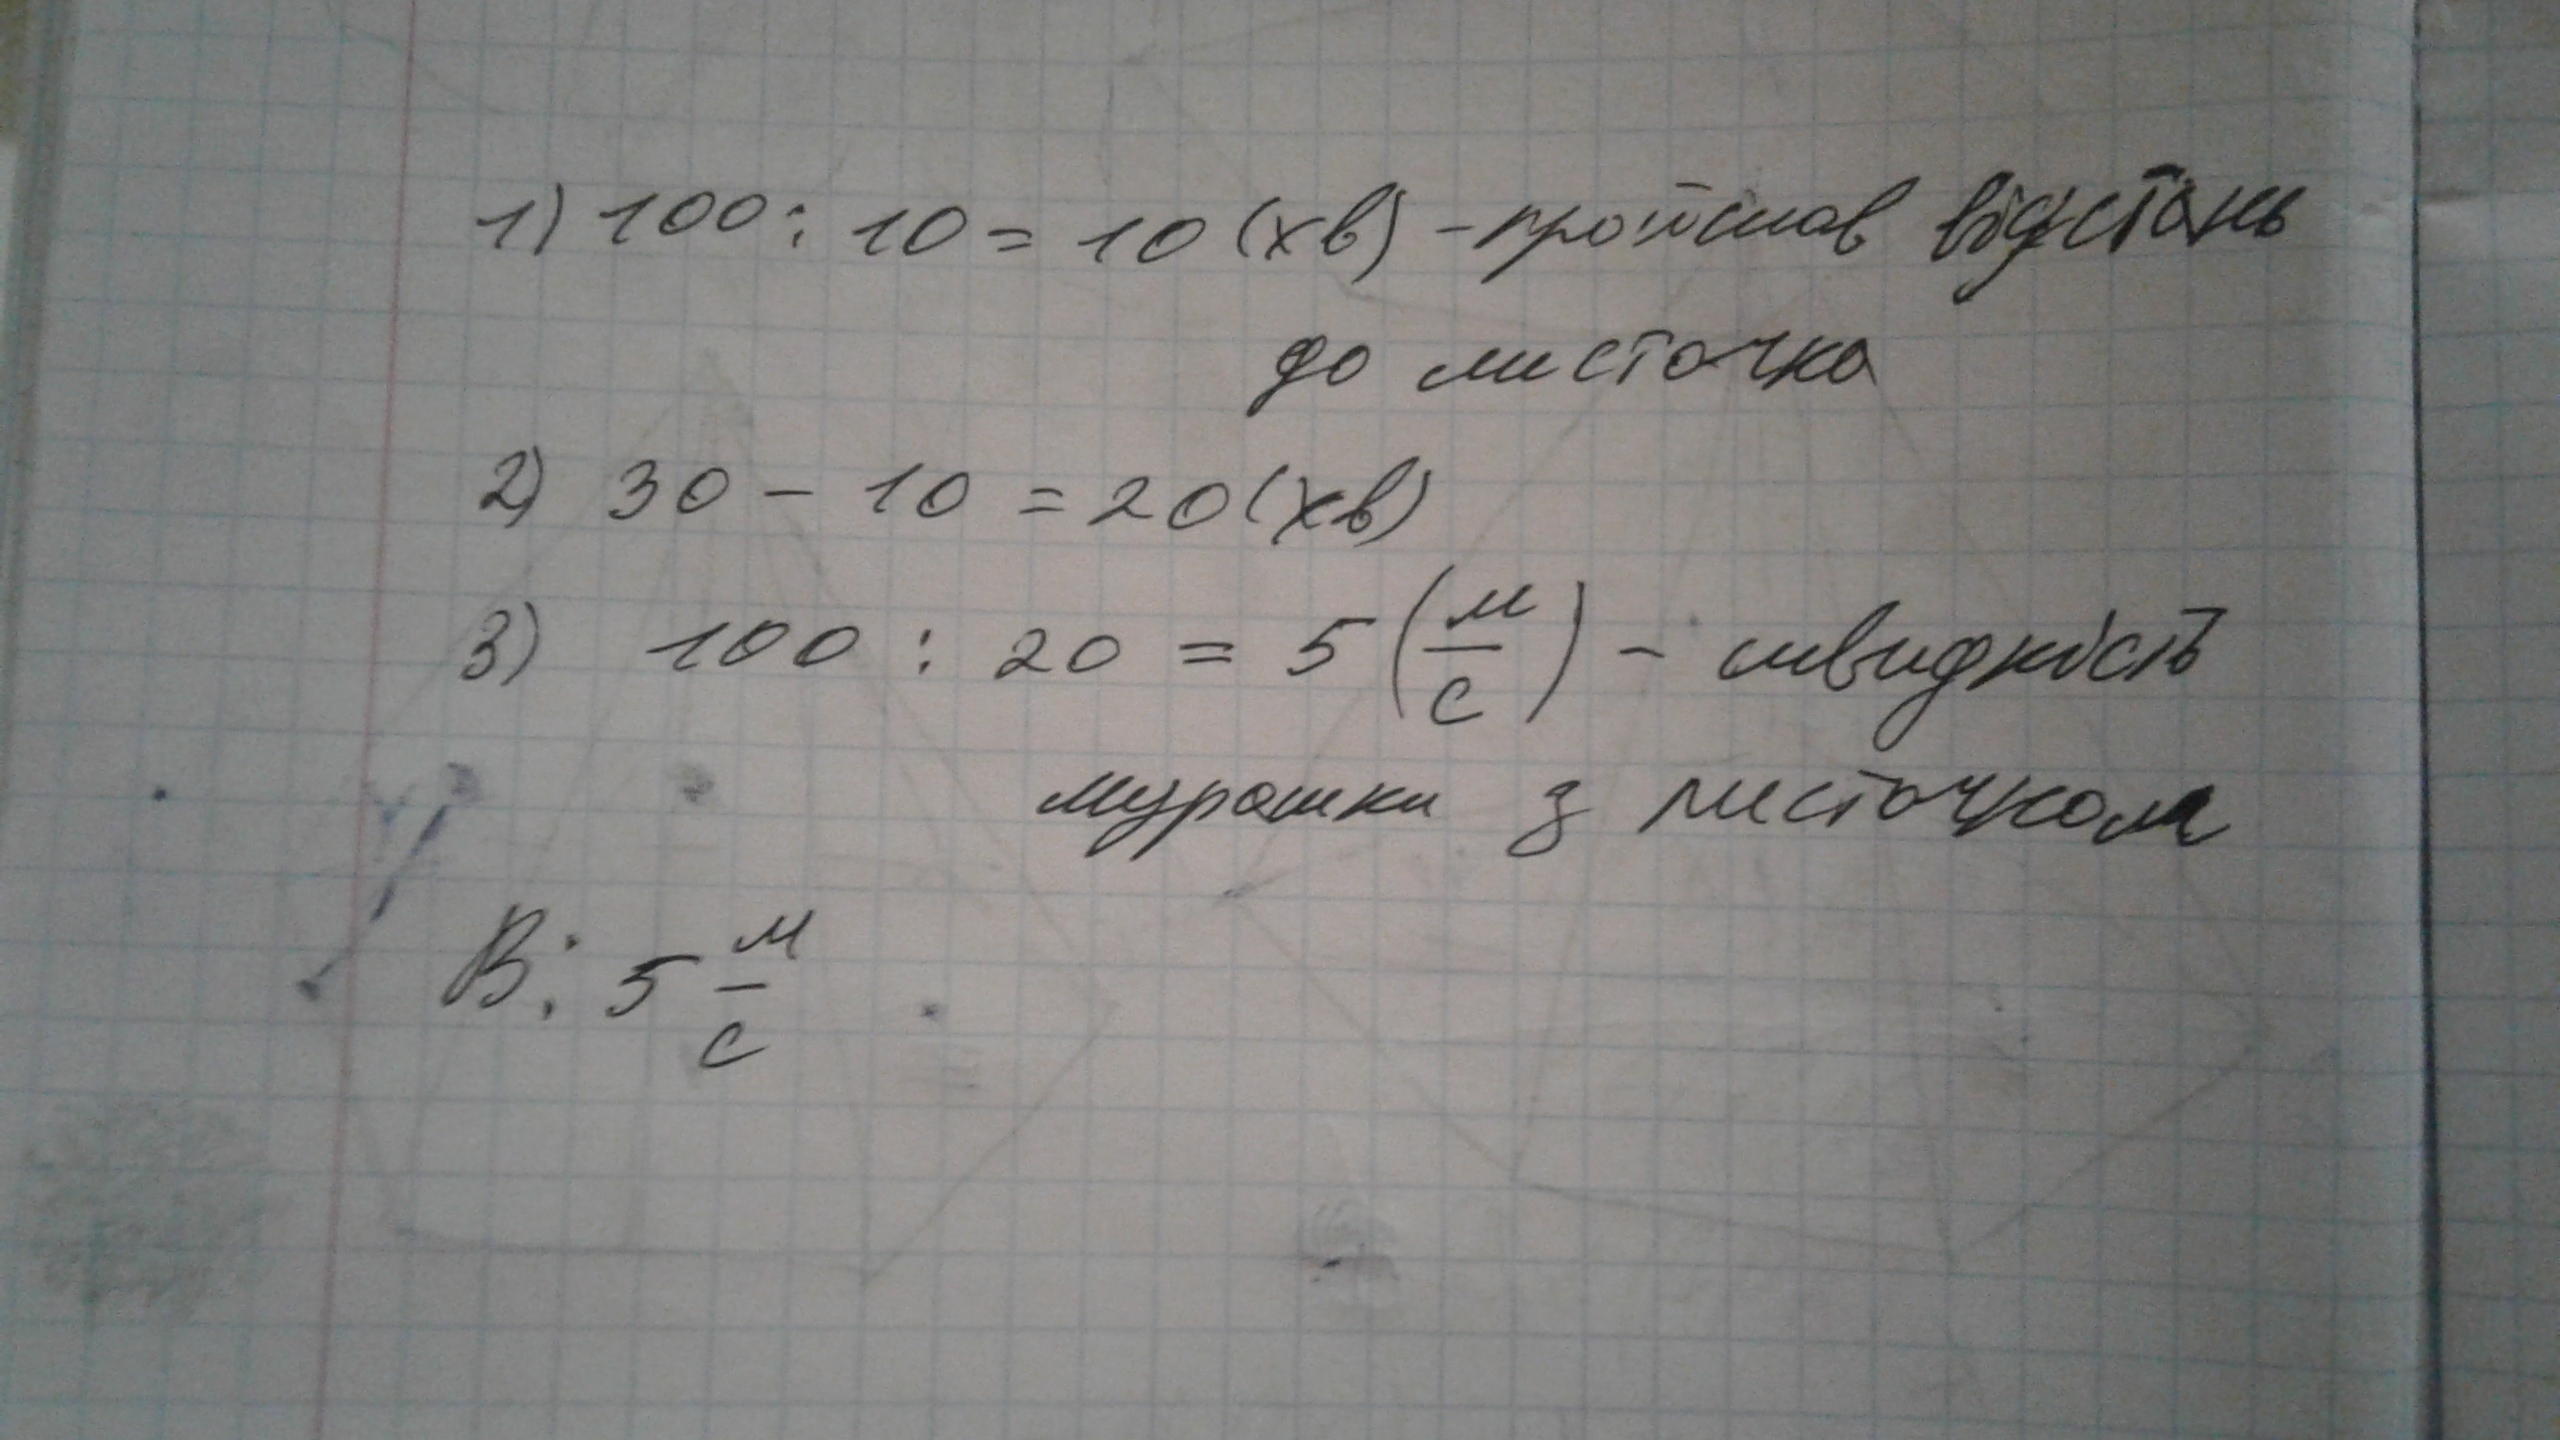 1) 100 : 10 = 10 (хв) - пройшов відстань
до листочка
2) 30 - 10 = 20 (хв)
3) 100 : 20 = 5 (м/с) - швидкість
мурашки з листочком
В: 5 м/с